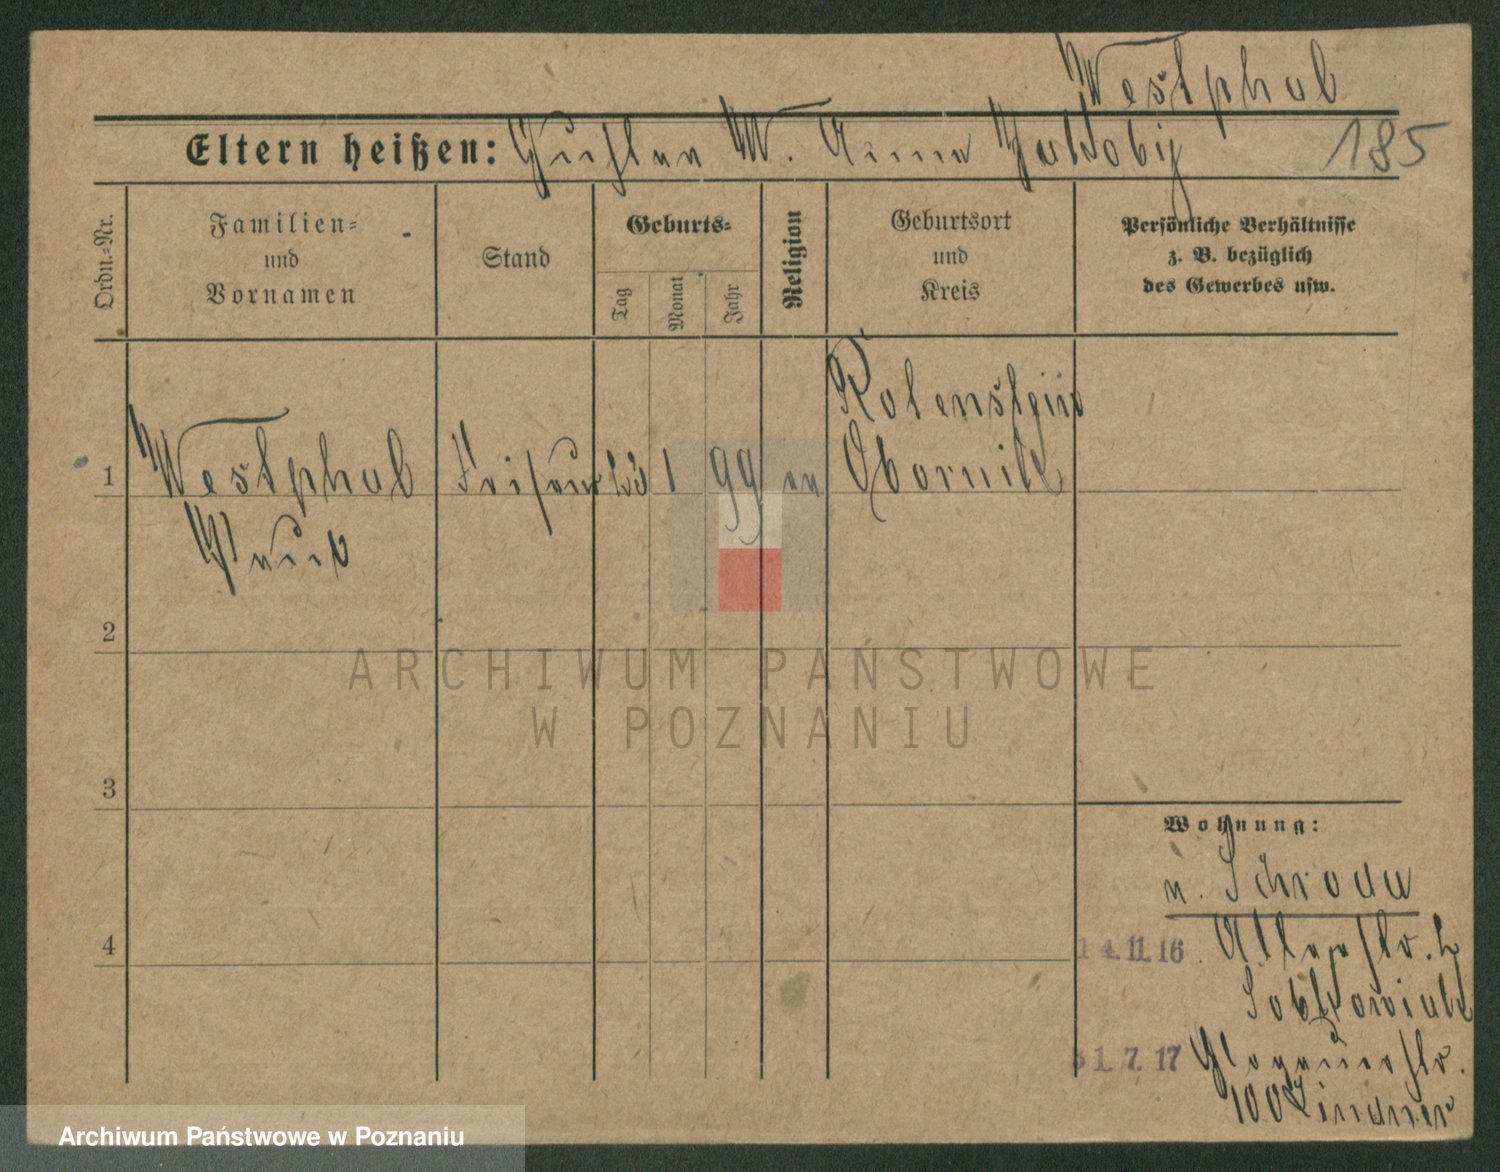 Westphal
Eltern heißen: Gustav W. Anna Jakoby
185
Ordn.-Nr.
Familien-
und
Vornamen
Stand
Geburts-
Tag
Monat
Jahr
Religion
Geburtsort
und
Kreis
Persönliche Verhältnisse
z. B. bezüglich
des Gewerbes usw.
Kolenstein
1 Westphal Friseur 1 99 ev Obornik
2
ARCHIWUM PAŃSTWOWE
W POZNANIU
3
Wohnung:
n. Schroda
4
14.11.16
31.7.17 Glogauerstr.
100 Lindner
Archiwum Państwowe w Poznaniu